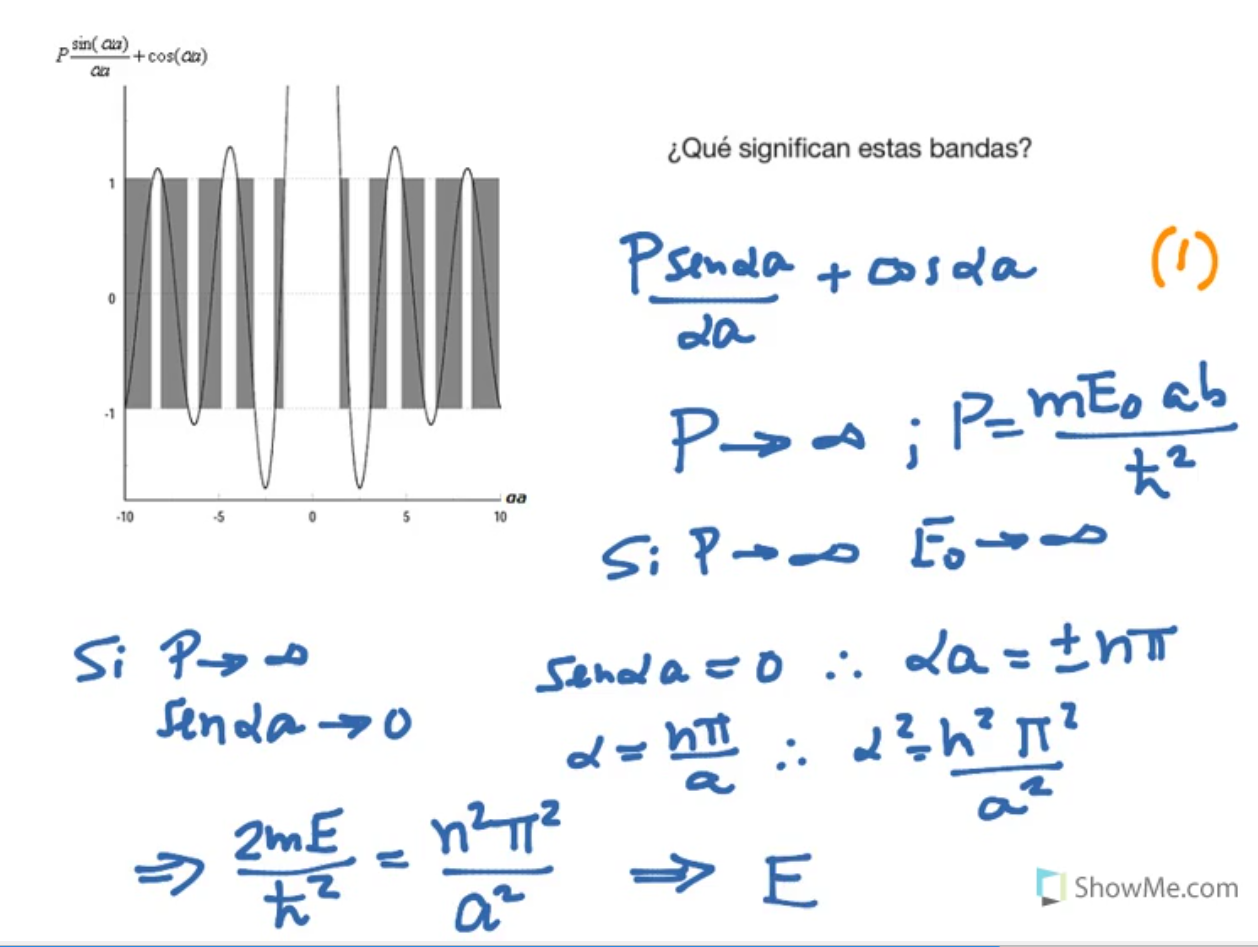 P sin(αa)/αa + cos(αa)
1
0
-1
-10 -5 0 5 10
αa
¿Qué significan estas bandas?
P senαa/αa + cosαa (1)
P → ∞ ; P = mE₀ab/ħ²
Si P → ∞ E₀ → ∞
Si P → ∞
senαa → 0
senαa = 0 ∴ αa = ±nπ
α = nπ/a ∴ α² = n²π²/a²
⇒ 2mE/ħ² = n²π²/a² ⇒ E
ShowMe.com